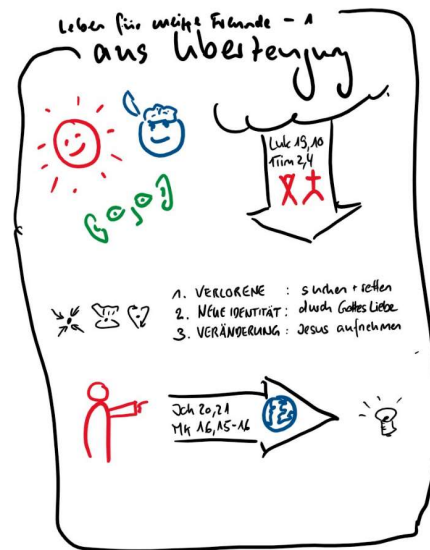 Leben für meine Freunde - 1
aus Überzeugung
Luk 19,10
1Tim 2,4
1. VERLORENE : suchen + retten
2. NEUE IDENTITÄT : durch Gottes Liebe
3. VERÄNDERUNG : Jesus aufnehmen
Joh 20,21
Mk 16,15-16